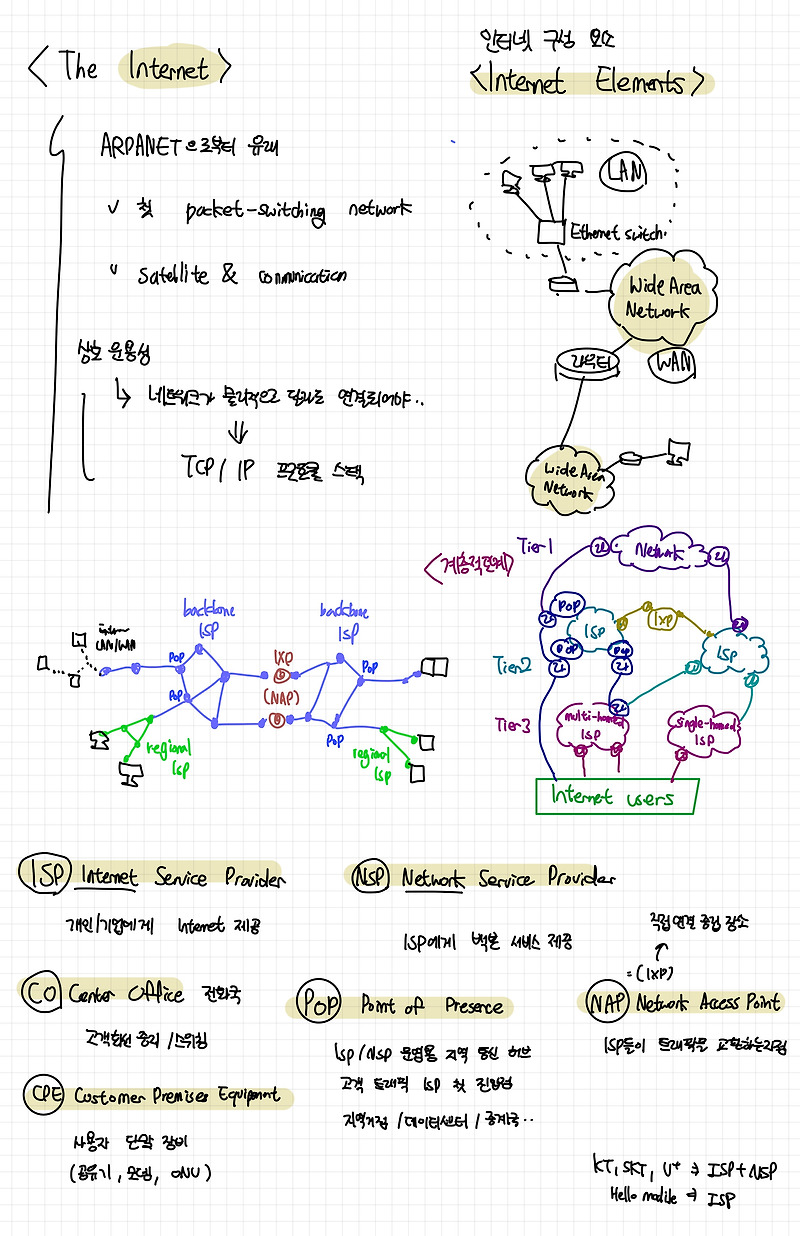 <The Internet>
ARPANET으로부터 유래
✓ 첫 packet-switching network
✓ Satellite & communication
상호 운용성
↳ 네트워크가 물리적으로 달라도 연결되어야..
⇓
TCP/IP 프로토콜 스택
인터넷 구성 요소
<Internet Elements>
LAN
Ethernet switch
Wide Area
Network
라우터
WAN
Wide Area
Network
backbone
ISP
backbone
ISP
LAN/WAN
POP
POP
IXP
(NAP)
POP
POP
regional
ISP
regional
ISP
<계층적단계>
Tier1
라
Network
라
POP
라
ISP
라
라
IXP
라
ISP
Tier2
POP
POP
라
라
라
라
Tier3
multi-homed
ISP
라
single-homed
ISP
라
라
라
Internet users
ISP Internet Service Provider
개인/기업에게 Internet 제공
NSP Network Service Provider
ISP에게 백본 서비스 제공
CO Center Office 전화국
고객회선 종지/스위칭
POP Point of Presence
ISP/NSP 운영용 지역 통신 허브
고객 트래픽 ISP 첫 진입점
지역거점/데이터센터/중계국..
직접 연결 중립 장소
↑
=(IXP)
NAP Network Access Point
ISP들이 트래픽을 교환하는지점
CPE Customer Premises Equipment
사용자 단말 장비
(공유기, 모뎀, ONU)
KT, SKT, U+ ⇒ ISP+NSP
Hello mobile ⇒ ISP